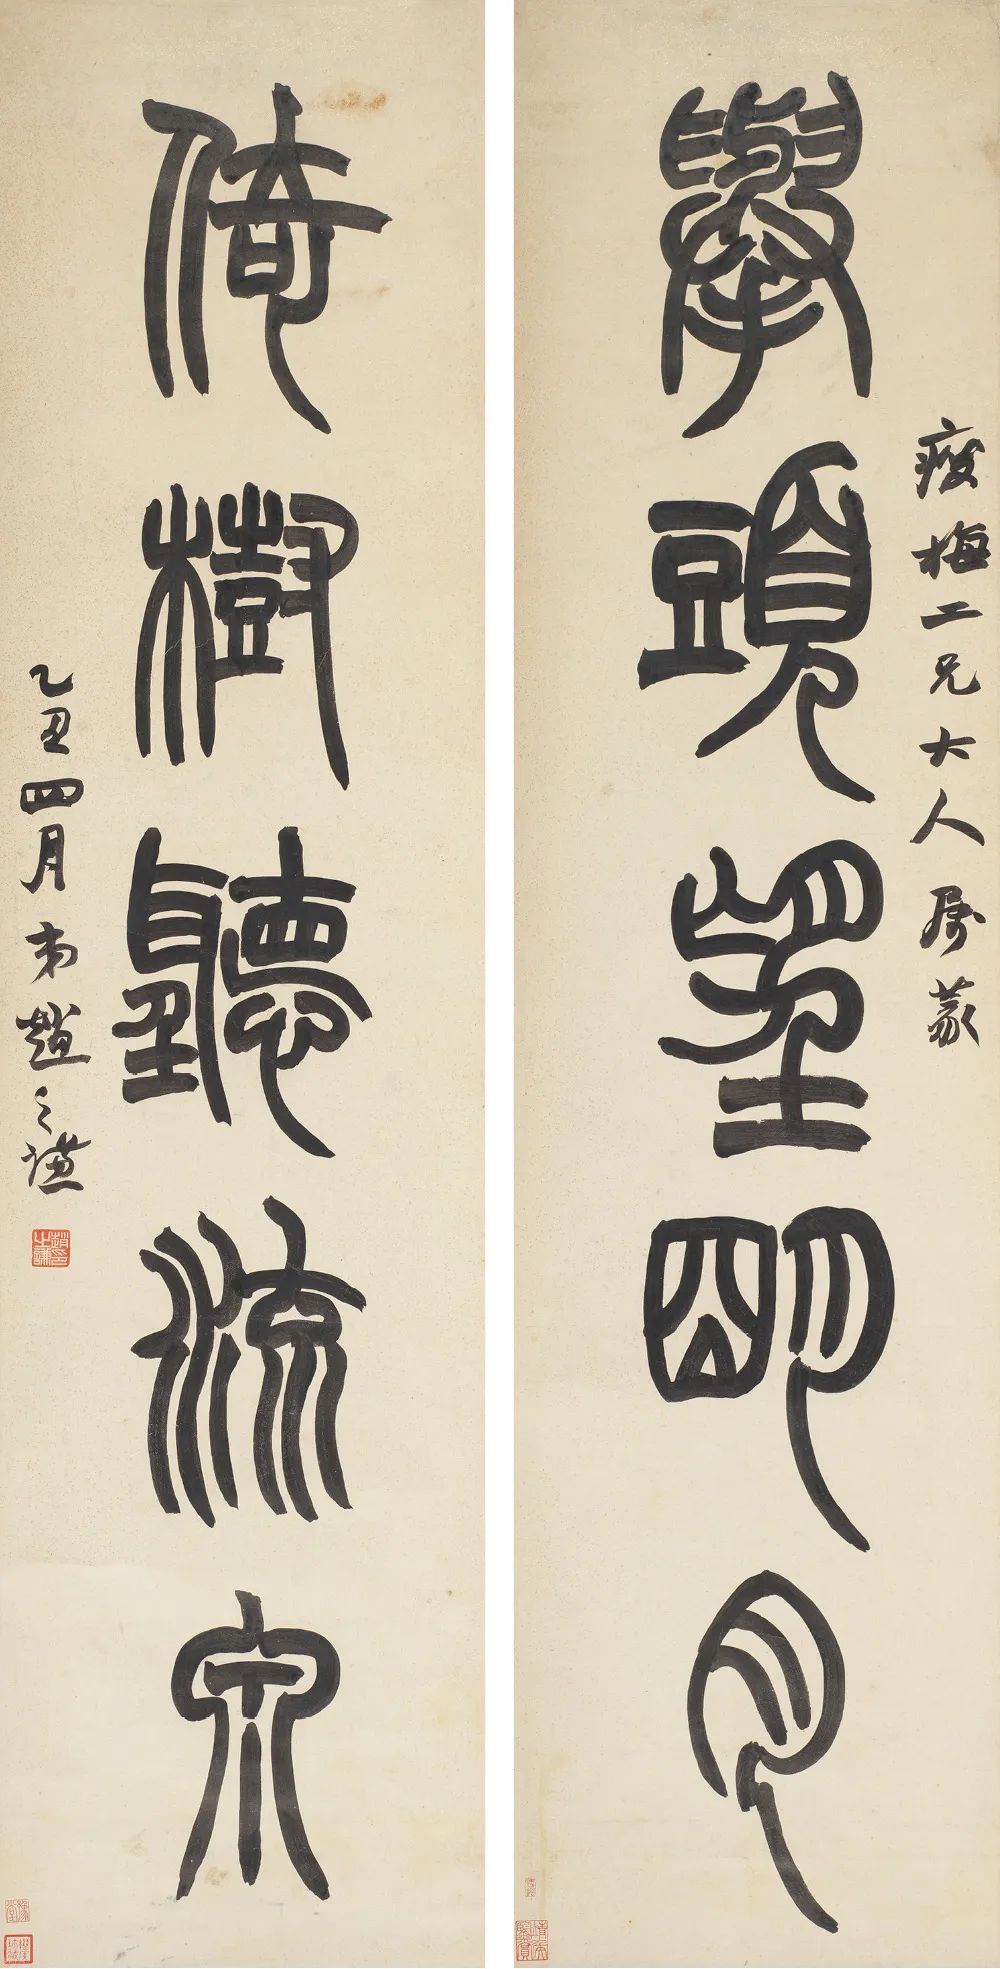 瘦梅二兄大人属篆
舉頭望明月
倚樹聽流泉
乙丑四月弟趙之謙